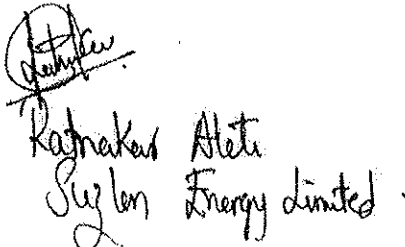 Ratnakar Aleti
Suzlon Energy Limited